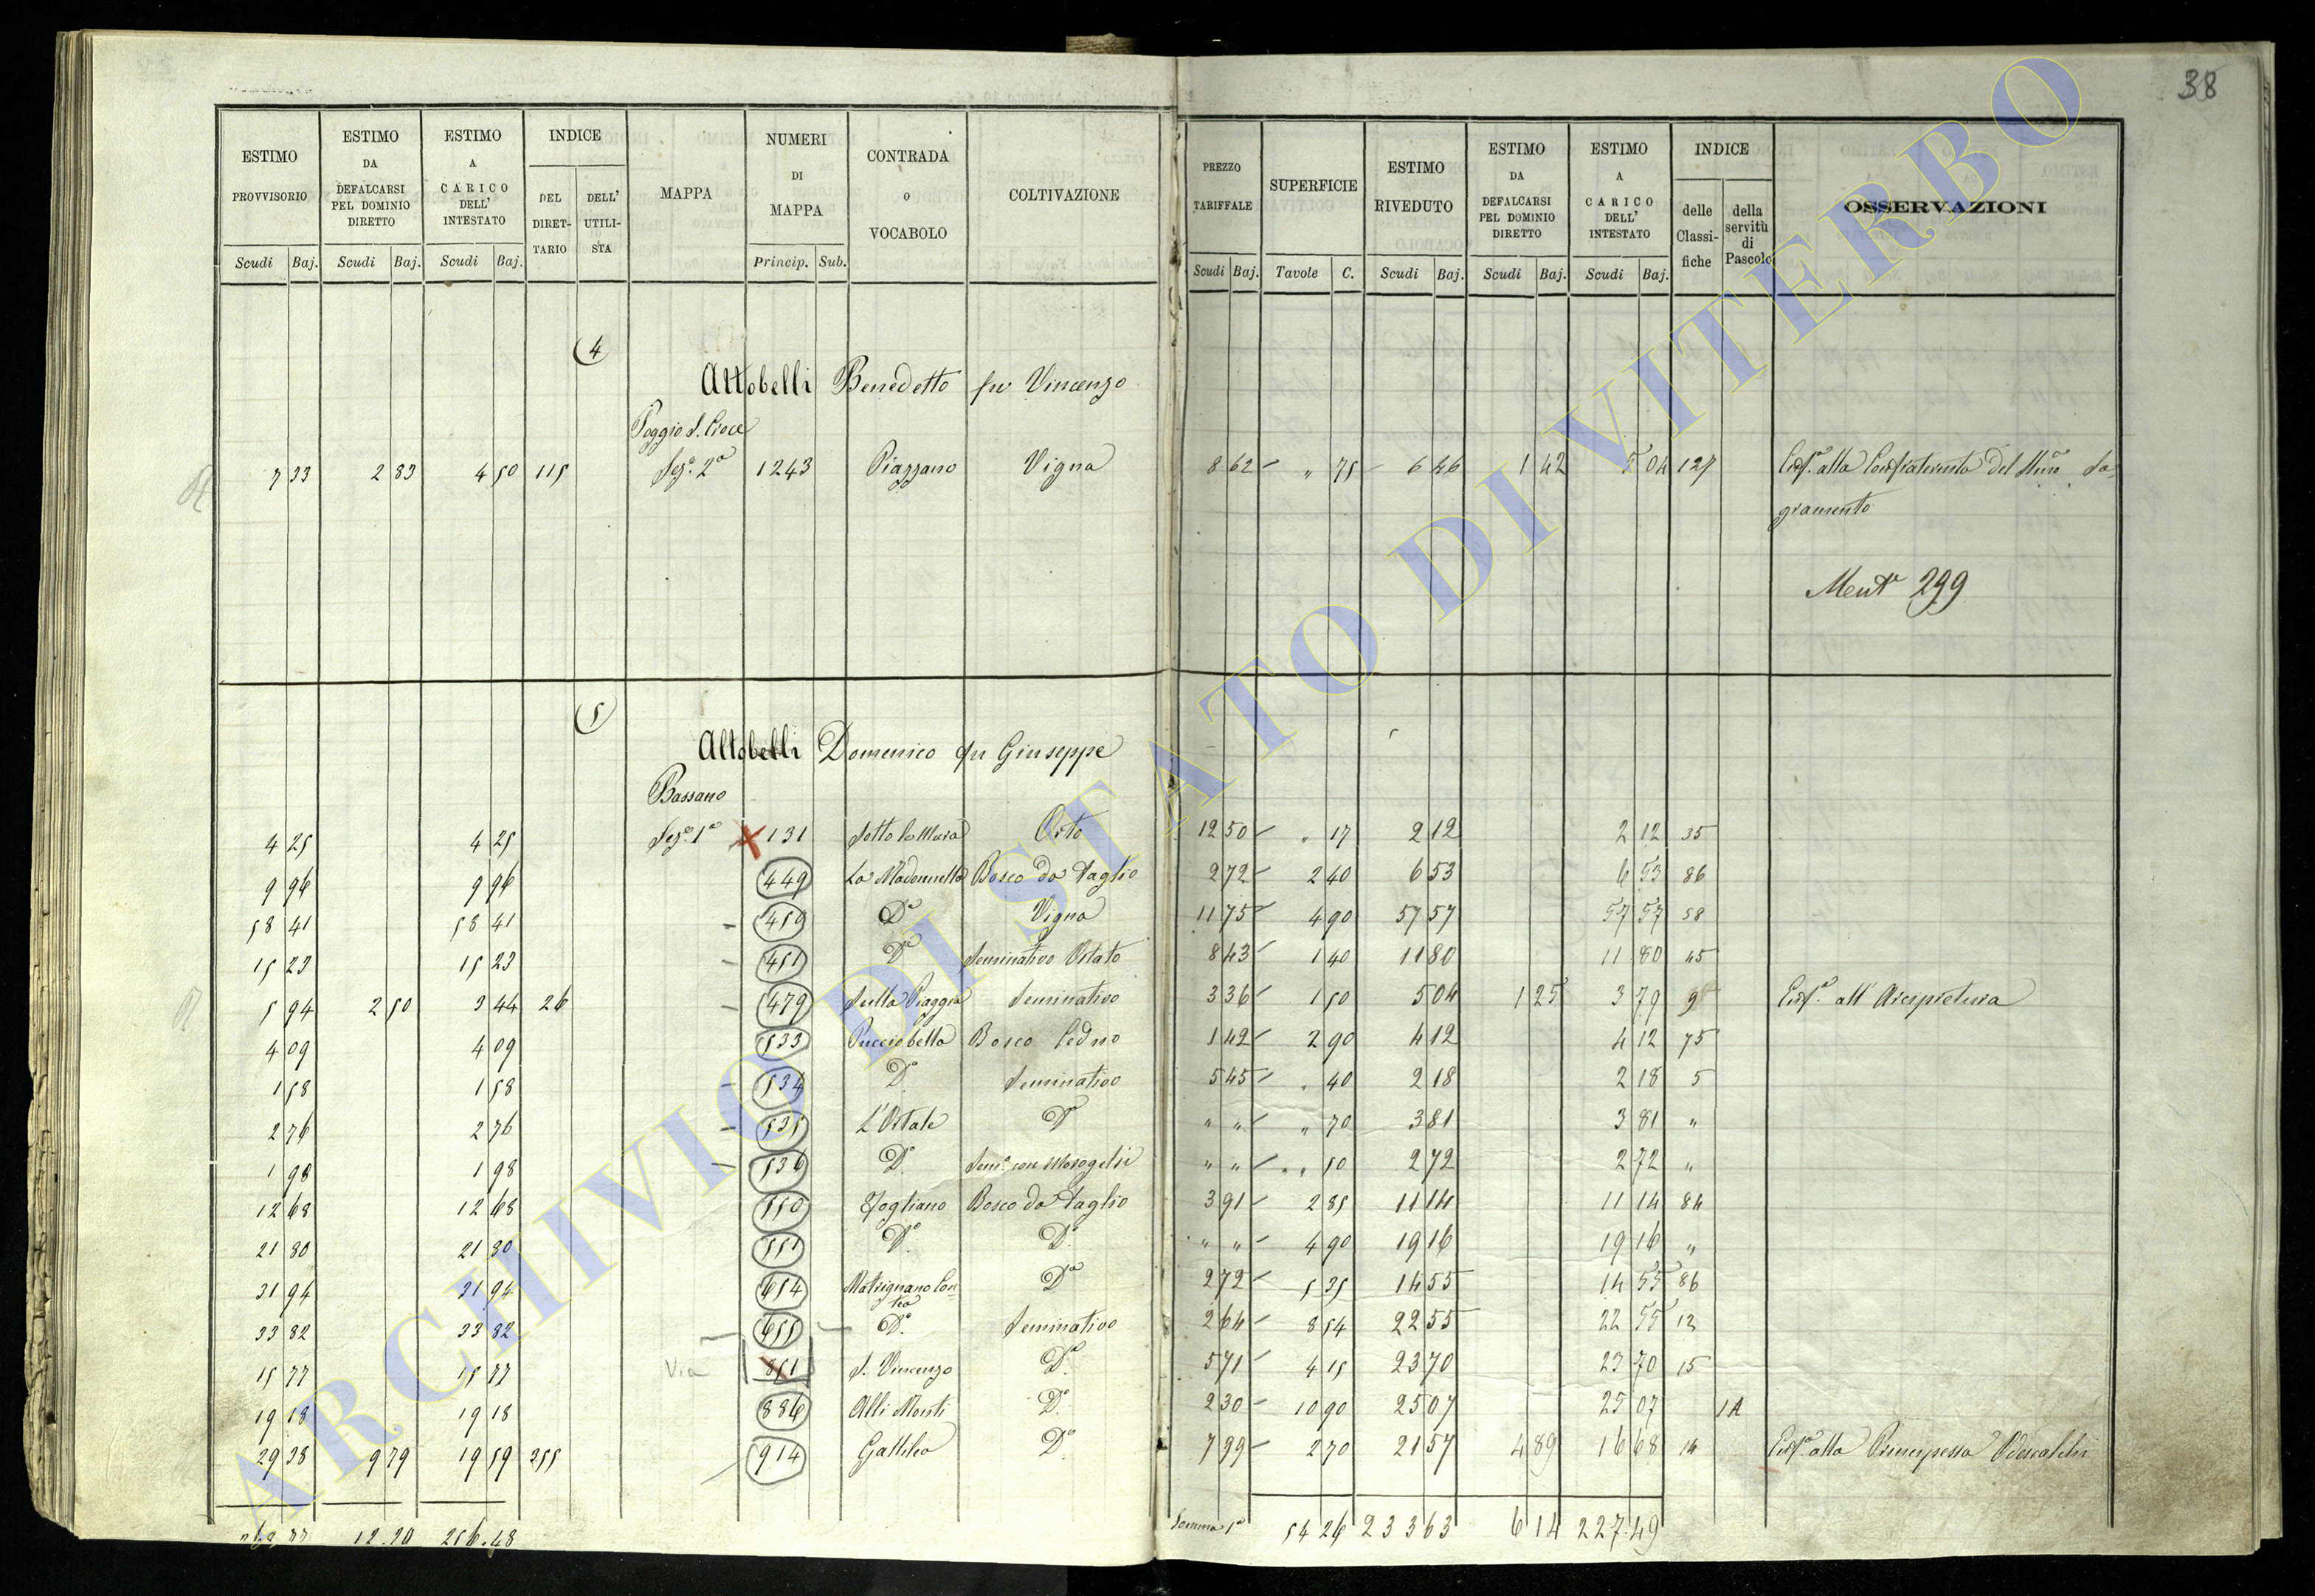 38
ESTIMO PROVVISORIO Scudi Baj.
ESTIMO DA DEFALCARSI PEL DOMINIO DIRETTO Scudi Baj.
ESTIMO A CARICO DELL' INTESTATO Scudi Baj.
INDICE DEL DIRETTARIO DELL' UTILISTA
MAPPA
NUMERI DI MAPPA Princip. Sub.
CONTRADA o VOCABOLO
COLTIVAZIONE
PREZZO TARIFFALE Scudi Baj.
SUPERFICIE Tavole C.
ESTIMO RIVEDUTO Scudi Baj.
ESTIMO DA DEFALCARSI PEL DOMINIO DIRETTO Scudi Baj.
ESTIMO A CARICO DELL' INTESTATO Scudi Baj.
INDICE delle Classifiche della servitù di Pascolo
OSSERVAZIONI
4
Altobelli Benedetto fu Vincenzo
Poggio S. Croce
7 33 2 83 4 50 115 Sez.e 2a 1243 Piazzano Vigna 8 62 " 75 6 46 1 42 5 04 127 Enf.a alla Confraternita del Smo Sa-
gramento
299
5
Altobelli Domenico fu Giuseppe
Bassano
4 25 4 25 Sez.e 1a 131 Sotto le Mura Orto 12 50 " 17 2 12 2 12 35
9 96 9 96 449 La Madonnella Bosco da Taglio 2 72 2 40 6 53 6 53 86
58 41 58 41 450 Do Vigna 11 75 4 90 57 57 57 57 58
15 23 15 23 451 Do Seminativo Vitato 8 43 1 40 11 80 11 80 45
5 94 2 50 3 44 26 479 Sulla Piaggia Seminativo 3 36 1 50 5 04 1 25 3 79 9 Enf.a all' Arcipretura
4 09 4 09 533 Pucciobello Bosco Ceduo 1 42 2 90 4 12 4 12 75
1 58 1 58 534 Do Seminativo 5 45 " 40 2 18 2 18 5
2 76 2 76 535 Do " " " 70 3 81 3 81 "
1 98 1 98 536 Do Semo con Morogelsi " " " 50 2 72 2 72 "
12 68 12 68 550 Bosco da Taglio 3 91 2 85 11 14 11 14 84
21 80 21 80 551 Do Do " " 4 90 19 16 19 16 "
31 94 31 94 654 Matrignano Contea Do 2 72 5 35 14 55 14 55 86
33 82 33 82 655 Do Seminativo 2 64 8 54 22 55 22 55 12
15 77 15 77 Via 851 S. Vincenzo Do 5 71 4 15 23 70 23 70 15
19 18 19 18 886 Alli Monti Do 2 30 10 90 25 07 25 07 14
29 38 9 79 19 59 255 914 Do 7 99 2 70 21 57 4 89 16 68 14 Enf.a alla Principessa Odescalchi
12.29 256.48 Somma 1a 54 26 233 63 6 14 227.49
ARCHIVIO DI STATO DI VITERBO